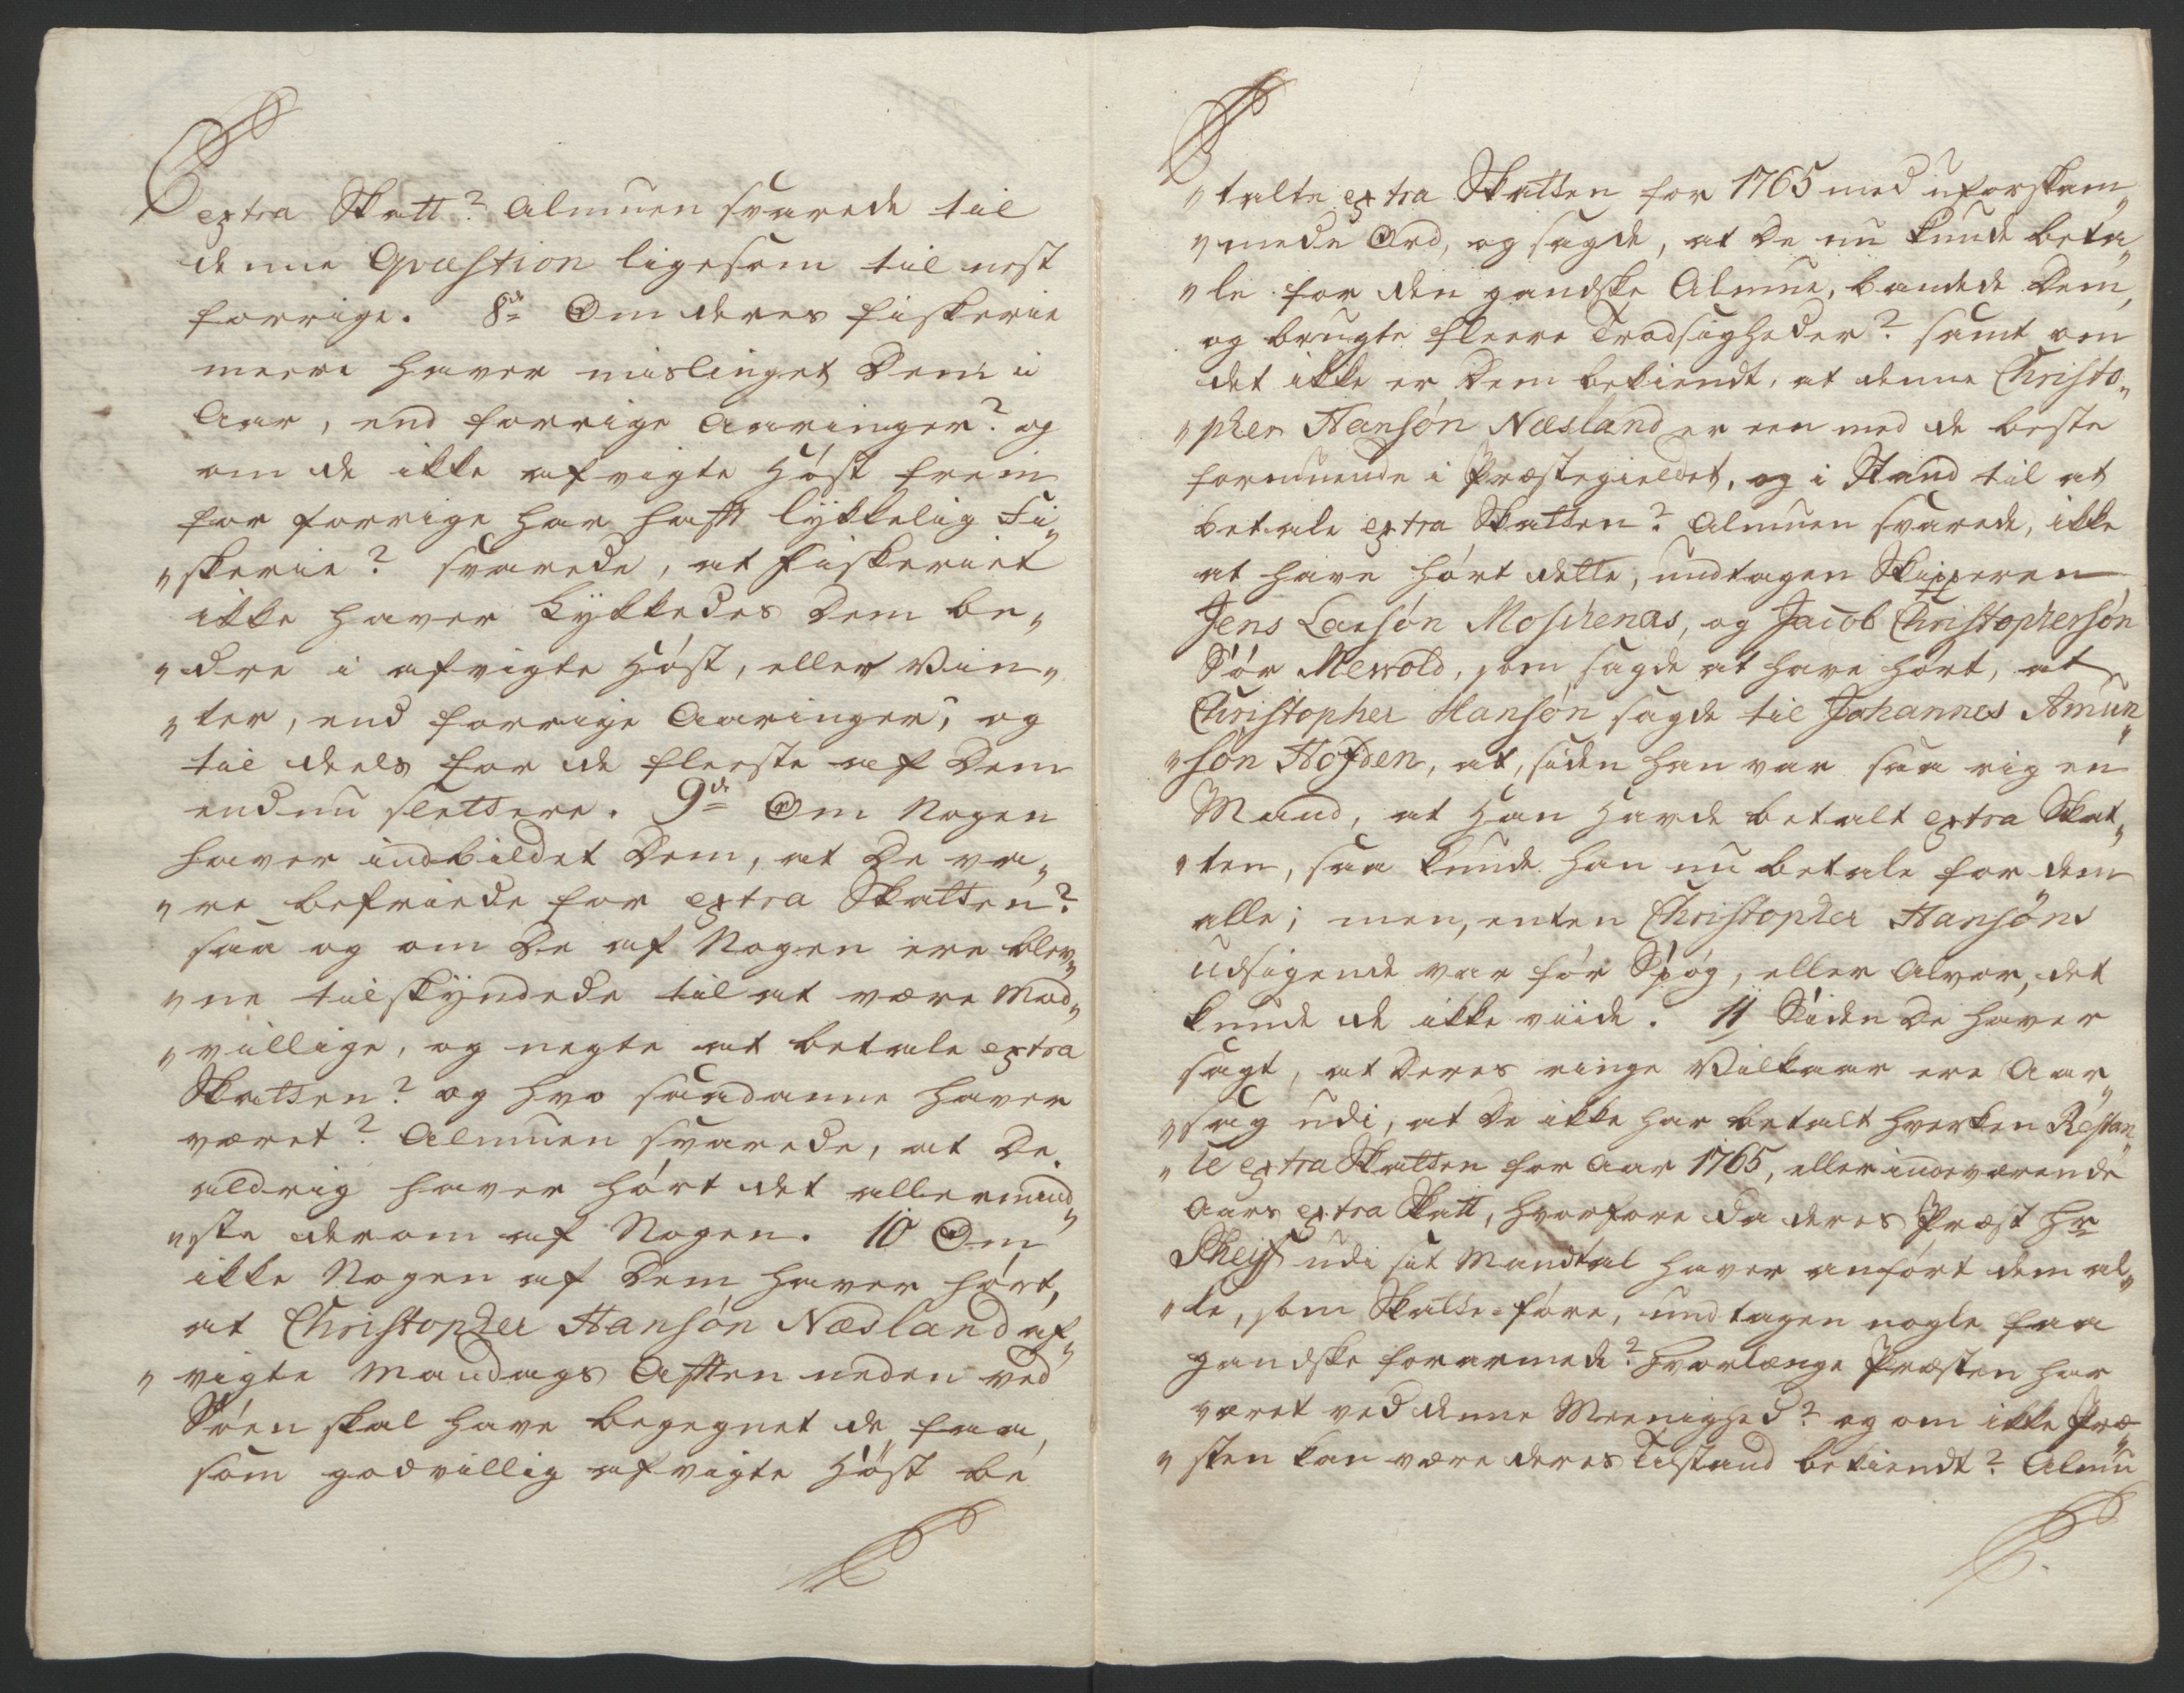 extra Skatt? Almuen svarede til
denne Qvæstion ligesom til nest
forrige. 8de Om deres fiskerie
meere haver mislinget Dem i
Aar, end forrige Aaringer? og
om de ikke afvigte Høst frem
for forrige har hafft lykkelig Fi„
„skerie? svarede, at fiskeriet
ikke haver Lykkedes Dem be„
„dre i afvigte Høst, eller Vin„
„ter, end forrige Aaringer, og
til deels for de fleeste af Dem
endnu slettere. 9de Om Nogen
haver indbildet Dem, at De va„
„re befriede for extra Skatten?
saa og om De af Nogen ere blev„
„ne tilskyndede til at være Mod„
„villige, og negte at betale extra
Skatten? og hvo saadanne haver
været? Almuen svarede, at De
aldrig haver hørt det allermind„
„ste derom af Nogen. 10 Om
ikke Nogen af Dem haver hørt,
at Christopher Hansøn Næsland af„
„vigte Mandags Afften neden ved
Søen skal have begegnet de faa,
som godvillig afvigte Høst be
„talte extra Skatten for 1765 med uforskam„
„mede Ord, og sagde, at De nu kunde beta„
„le for den gandske Almue, bandede Dem,
og brugte fleere Trodsigheder? samt om
det ikke er Dem bekiendt, at denne Christo„
„pher Hansøn Næsland er een med de beste
formuende i Præstegieldet, og i Stand til at
betale extra Skatten? Almuen svarede, ikke
at have hørt dette, undtagen Skipperen
Jens Larsøn Moschenæs, og Jacob Christophersøn
Sør Mervold, som sagde at have hørt, at
Christopher Hansøn sagde til Johannes Amun„
„søn Hofden, at, siden han var saa rig en
Mand, at Han Havde betalt extra Skat„
„ten, saa kunde han nu betale for dem
alle; men, enten Christopher Hansøns
udsigende var før Spøg, eller Alvor, det
kunde de ikke viide. 11 Siden De haver
sagt, at Deres ringe Vilkaar ere Aar„
„sag udi, at De ikke har betalt hverken Restan„
„ce extra Skatten for Aar 1765, eller indeværende
Aars extra Skatt, hvorfore da deres Præst Hr
Scheyt udi sit Mandtal haver anført dem al„
„le, som Skatte-føre, undtagen nogle faa
gandske forarmede? Hvorlænge Præsten har
været ved denne Meenighed? og om ikke Præ„
„sten kan være deres Tilstand bekiendt? Almu